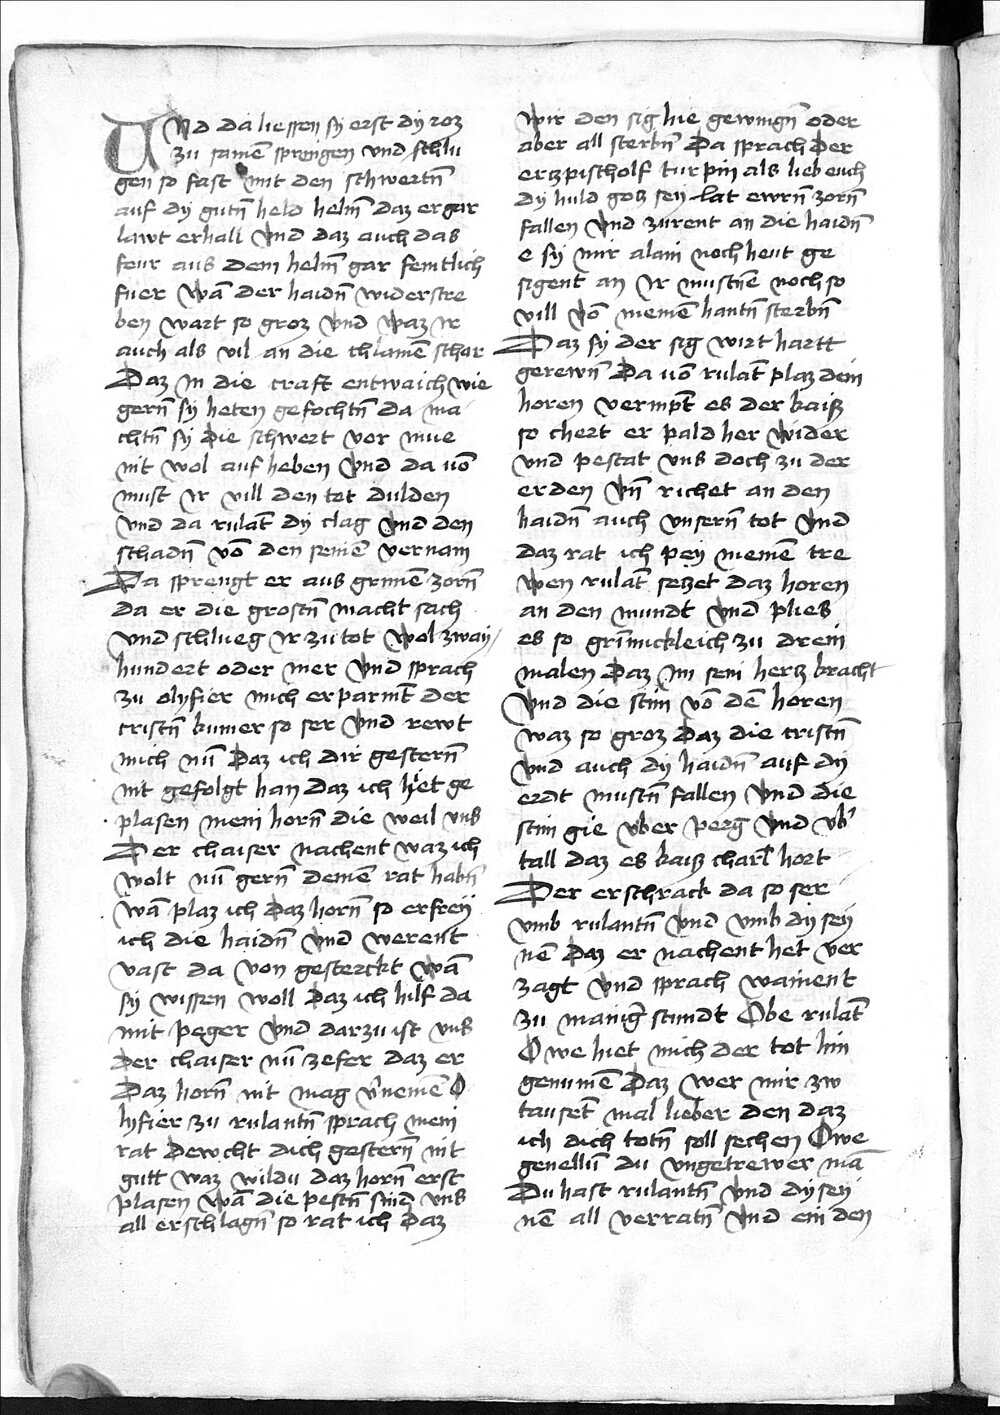 Und da liessen sy erst dy roz
zu samē sprengen vnd schlu
gen so fast mit den schwertn̄
auf dy gutn̄ held helm̄ daz er gar
lawt erhall vnd daz auch das
feur aus dem helm̄ gar femtlich
fuer wā der haidn̄ widerstre
ben wart so groz vnd waz ir
auch als vil an die chlainē schar
Daz in die craft entwaich wie
gern̄ sy heten gefochtn̄ da ma
chtn̄ sy die schwert vor mue
nit wol auf heben vnd da uō
must ir vill den tot dulden
vnd da rulāt dy clag vnd den
schadn̄ vō den seinē vernam
Da sprengt er aus grimē zorn̄
da er die grostn̄ macht sach
vnd schlueg ir zu tot wol zway
hundert oder mer vnd sprach
zu olyfier mich erparmt̄ der
cristn̄ kumer so ser vnd rewt
mich nū daz ich dir gestern̄
nit gefolgt han daz ich hiet ge
plasen mein horn̄ die weil vns
Der chaiser nachent waz ich
wolt nū gern̄ deinē rat habn̄
wā plaz ich daz horn̄ so erfrey
ich die haidn̄ vnd werent
vast da von gesterckt wā
sy wissen woll daz ich hilf da
mit peger vnd darzu ist vns
der chaiser nū zefer daz er
Daz horn̄ nit mag v̄nemē O
lyfier zu rulantn̄ sprach mein
rat dewcht dich gestern̄ nit
gutt waz wildu daz horn̄ erst
plasen wā die pestn̄ sind vns
all erschlagn̄ so rat ich daz
wir den sig hie gewingn̄ oder
aber all sterbn̄ Da sprach der
erczpischolf turpin als lieb euch
dy huld gotz sey lat ewrn̄ zorn̄
fallen vnd zurent an die haidn̄
e sy mir alain noch heut ge
sigent an ir mustnē noch so
vill vō meinē hantn̄ sterbn̄
Daz sy der sig wirt hartt
gerewn̄ Da uō rulāt plaz dein
horen vernīpt es der kaiß
so chert er pald her wider
vnd pestat vns doch zu der
erden vn̄ richet an den
haidn̄ auch vnsern̄ tot vnd
daz rat ich pey meinē tre
wen rulāt seczet daz horen
an den mundt vnd plies
es so grīmickleich zu drein
malen daz im sein hercz kracht
vnd die stim vō dē horen
waz so groz daz die cristn̄
vnd auch dy haidn̄ auf dy
erdt mustn̄ fallen vnd die
stim gie vber perg vnd vb̓
tall daz es kaiß charl hort
Der erschrack da so ser
vmb rulantn̄ vnd vmb dy sey
nē daz er nachent het ver
zagt vnd sprach wainent
zu manig̓ stundt Obe rulāt
Owe hiet mich der tot hin
genumē daz wer mir zw
tausēt mal lieber den daz
ich dich totn̄ soll sechen Owe
genellū du vngetrewer mā
Du hast rulantn̄ vnd dy sey
nē all verratn̄ vnd ein den